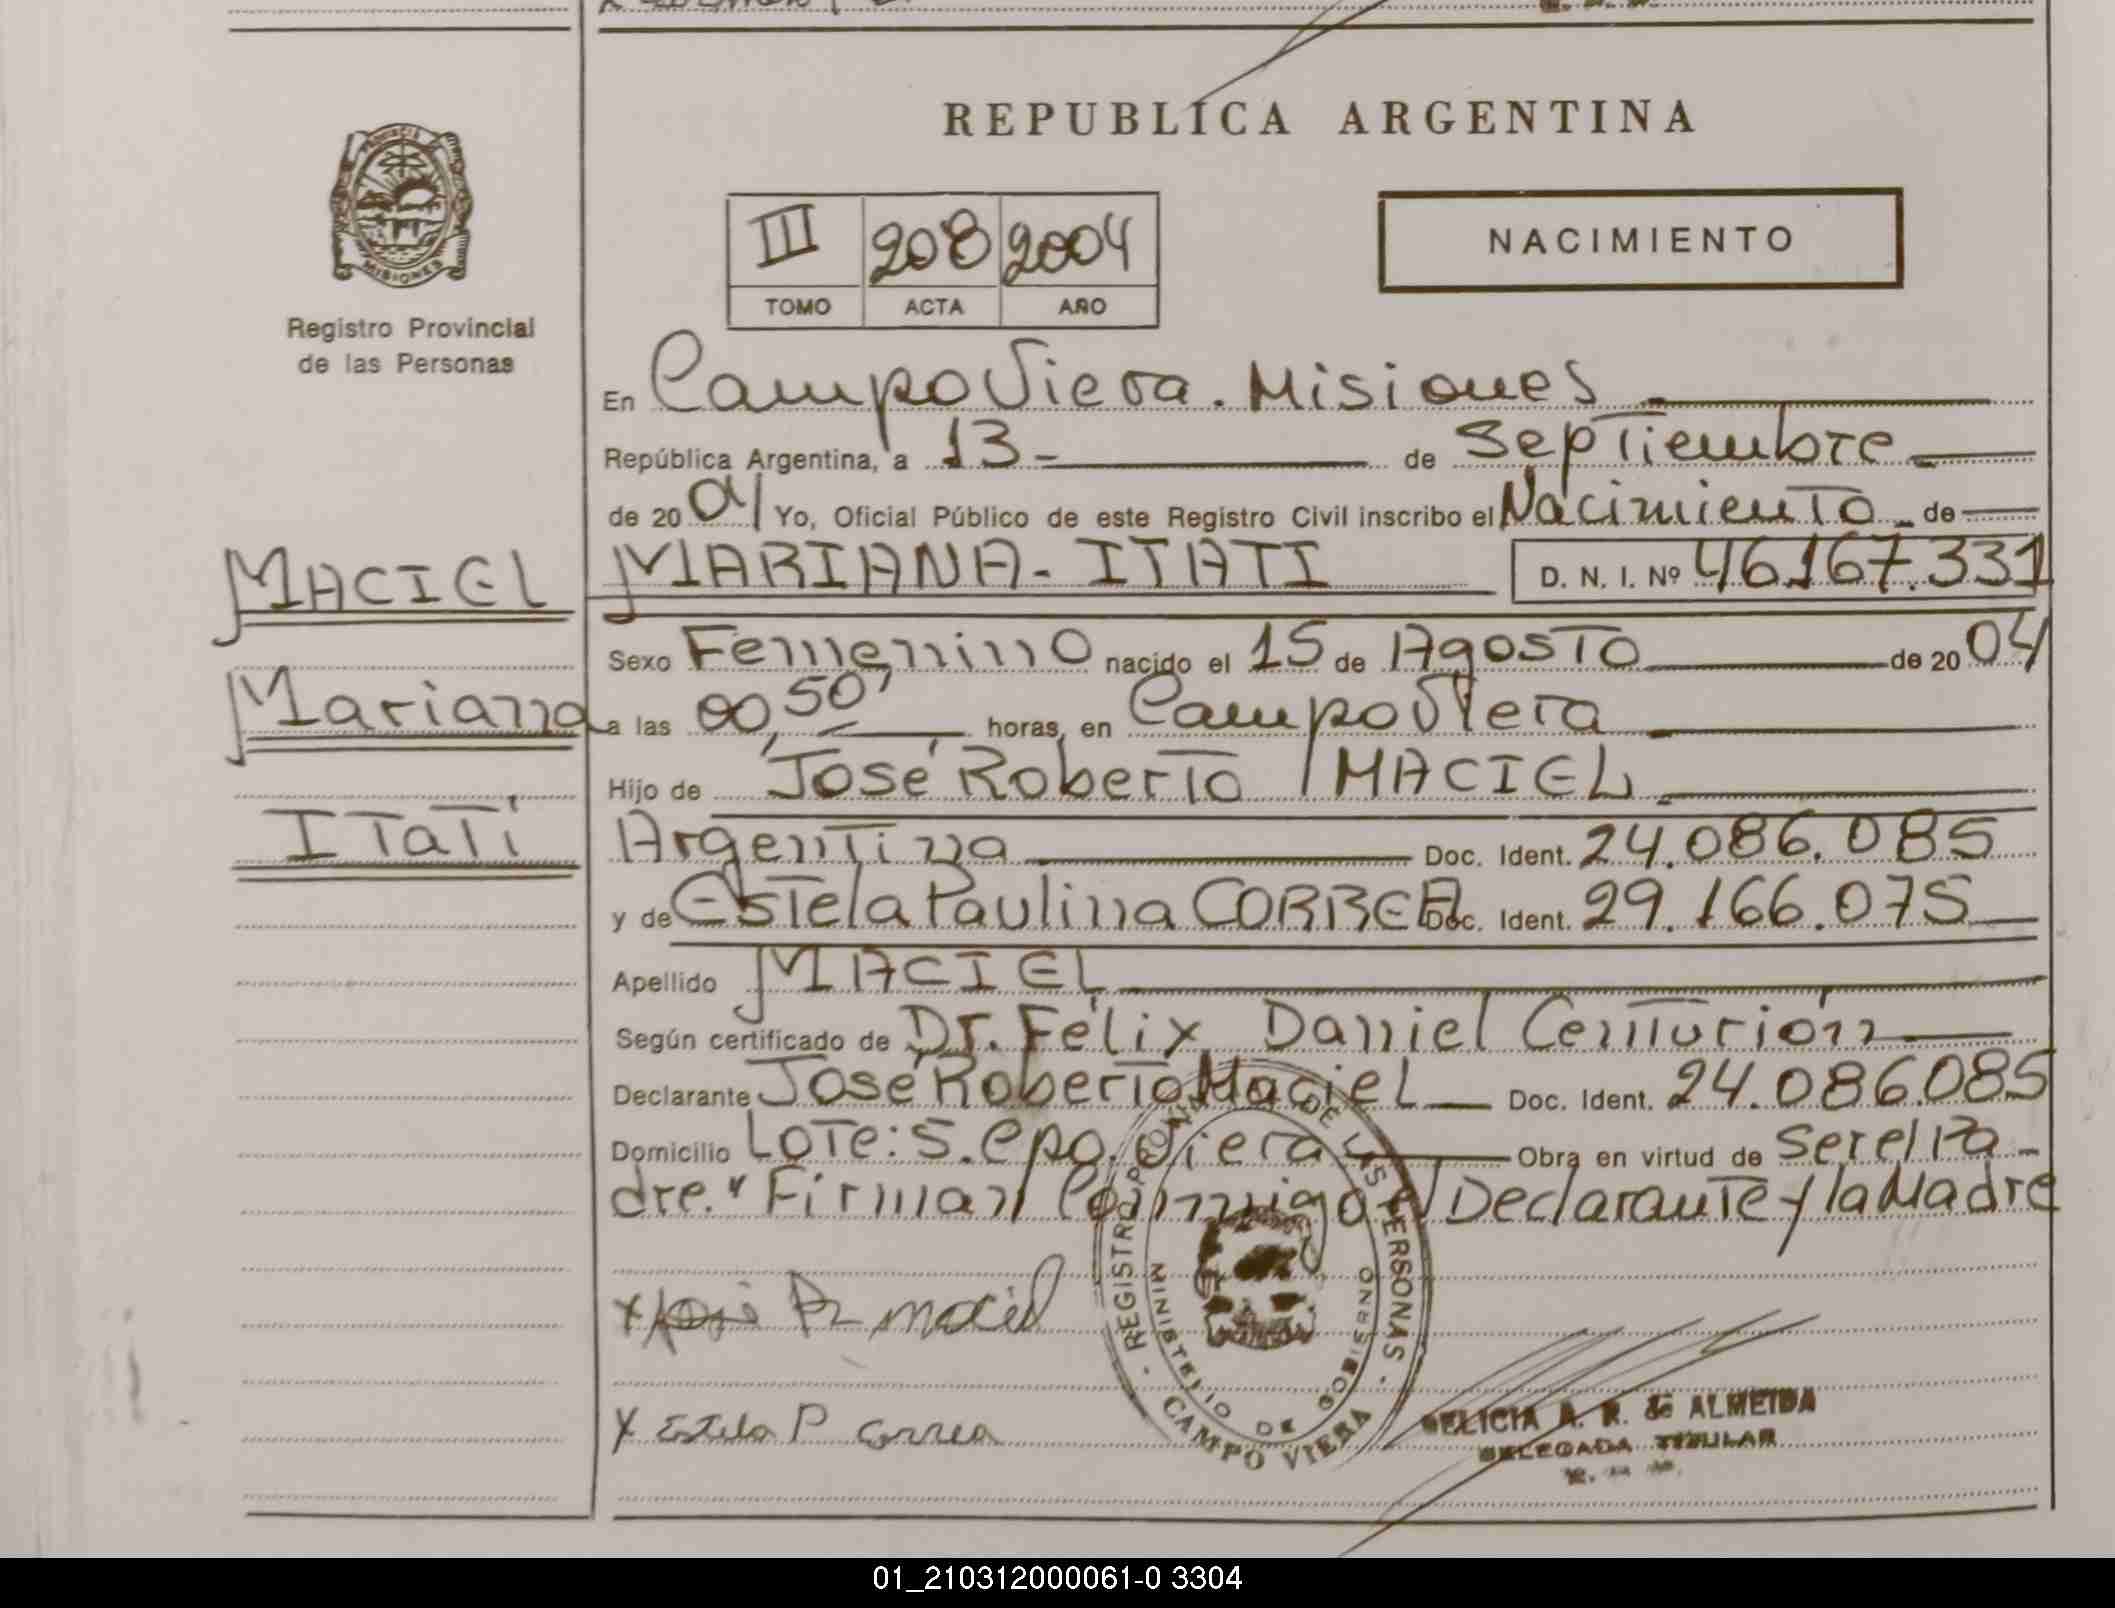 REPUBLICA ARGENTINA
PROVINCIA
MISIONES
Registro Provincial
de las Personas
III 208 2004
TOMO ACTA AÑO
NACIMIENTO
En Campo Viera. Misiones
República Argentina, a 13- de Septiembre
de 20 04 Yo, Oficial Público de este Registro Civil inscribo el Nacimiento de
MACIEL MARIANA- ITATI D. N. I. Nº 46.167.331
Sexo Femenino nacido el 15 de Agosto de 20 04
Mariana a las 00,50' horas, en Campo Viera
Hijo de José Roberto MACIEL
Itatí Argentina Doc. Ident. 24.086.085
y de Estela Paulina CORREA Doc. Ident. 29.166.075
Apellido MACIEL
Según certificado de Dr. Félix Daniel Centurión
Declarante José Roberto Maciel Doc. Ident. 24.086.085
Domicilio Lote: 5. Cpo. Viera Obra en virtud de ser el Pa-
dre." Firman Conmigo el Declarante y la Madre
x José R maciel
x Estela P Correa
REGISTRO PROVINCIAL DE LAS PERSONAS
MINISTERIO DE GOBIERNO
CAMPO VIERA
DELICIA A. R. de ALMEIDA
DELEGADA TITULAR
01_210312000061-0 3304